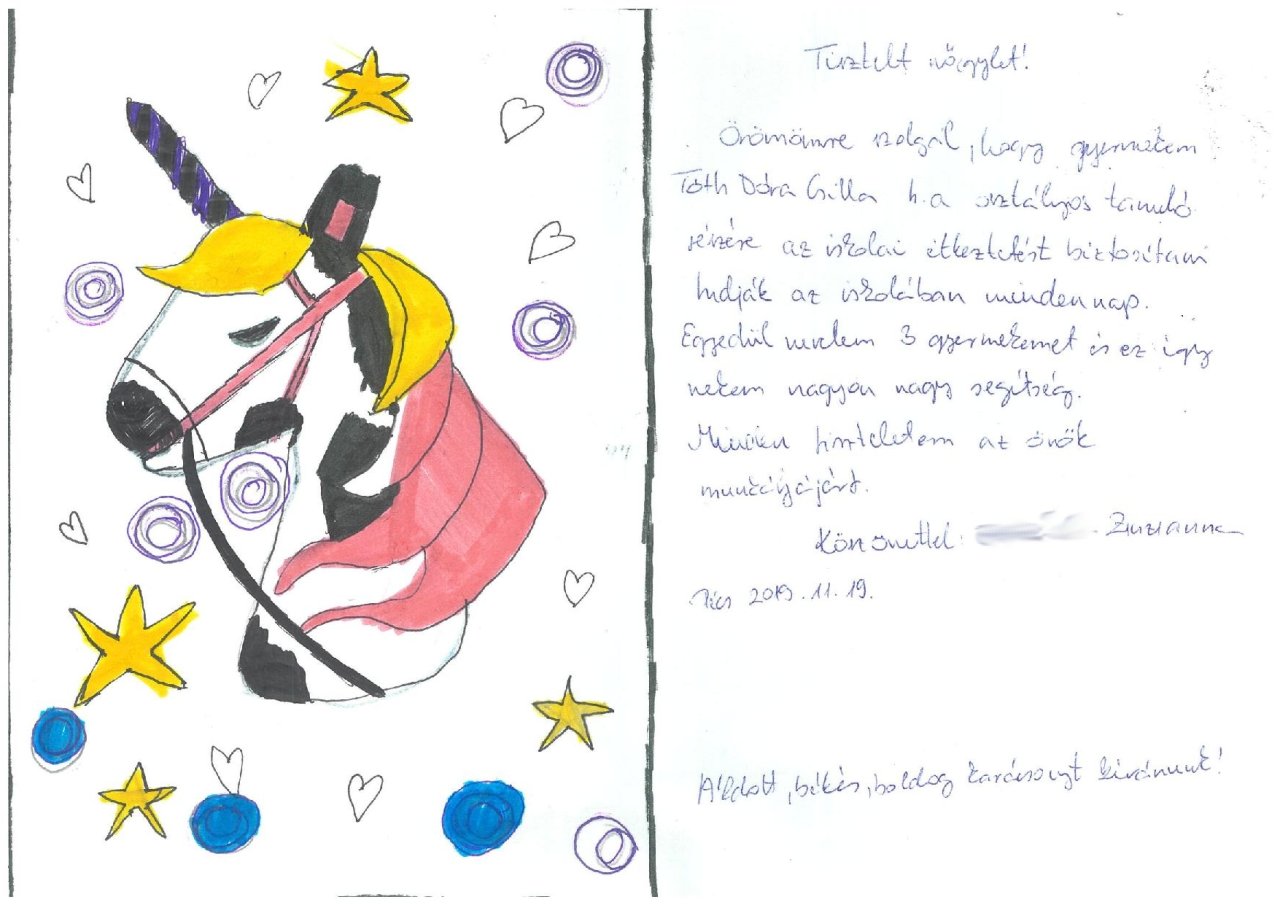 Tisztelt nőegylet!
Örömömre szolgál, hogy gyermekem
Tóth Dóra Csilla h.a osztályos tanuló
részére az iskolai étkeztetést biztosítani
tudják az iskolában minden nap.
Egyedül nevelem 3 gyermekemet és ez így
nekem nagyon nagy segítség.
Minden tiszteletem az önök
munkájájárt.
Köszönettel: Zsuzsanna
Pécs 2019.11.19.
Áldott, békés, boldog karácsonyt kívánunk!